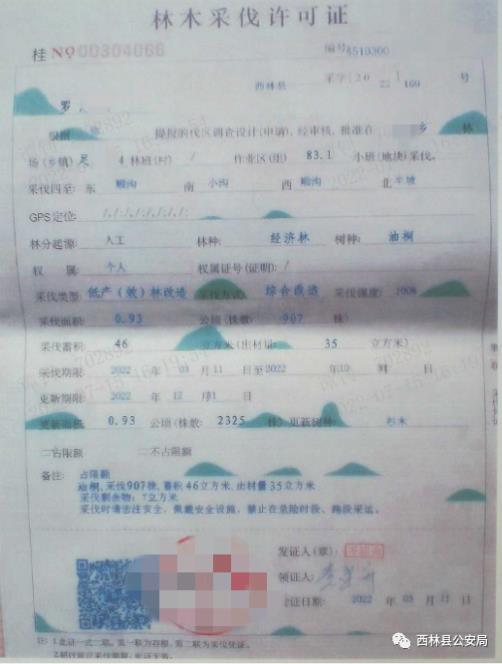 林木采伐许可证
桂 NO 00304066 编号4519300
西林县 采字[2022]169 号
罗
根据 提报的伐区调查设计(申请),经审核,批准在 乡 林
场(乡镇) 4 林班(村) / 作业区(组) 83.1 小班(地块)采伐。
采伐四至: 东 顺沟 南 小沟 西 顺沟 北 半坡
GPS定位: /./././././.
林分起源: 人工 林种: 经济林 树种: 油桐
权 属: 个人 权属证号(证明): /
采伐类型: 低产(效)林改造 采伐方式: 综合改造 采伐强度: 100%
采伐面积: 0.93 公顷(株数: 907 株)
采伐蓄积: 46 立方米(出材量: 35 立方米)
采伐期限: 2022 年 03 月 11 日至 2022 年 10 月 日
更新期限: 2022 年 12 月 31 日
更新面积: 0.93 公顷(株数: 2325 株) 更新树种: 杉木
占限额 不占限额
备注: 占限额
油桐,采伐907株,蓄积46立方米,出材量35立方米
采伐剩余物:7立方米
采伐时请注意安全,佩戴安全设施,禁止在危险时段、路段采运。
发证人(章):
领证人:
发证日期: 2022 年 03 月 11 日
注: 1.此证一式二联。第一联为存根,第二联为采伐凭证。
西林县公安局